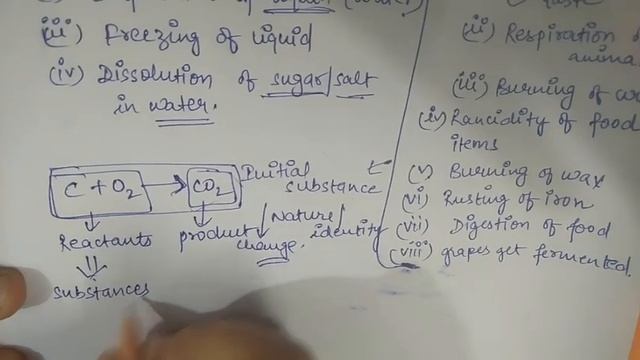 (iii) Freezing of liquid
(iv) Dissolution of sugar/salt
in water.
C + O₂ → CO₂
Reactants
product
substances
initial
substance
Nature
identity
change.
taste
(ii) Respiration
anima
(iii) Burning of
(iv) Rancidity of food
items
(v) Burning of wax
(vi) Rusting of iron
(vii) Digestion of food
(viii) grapes get fermented.